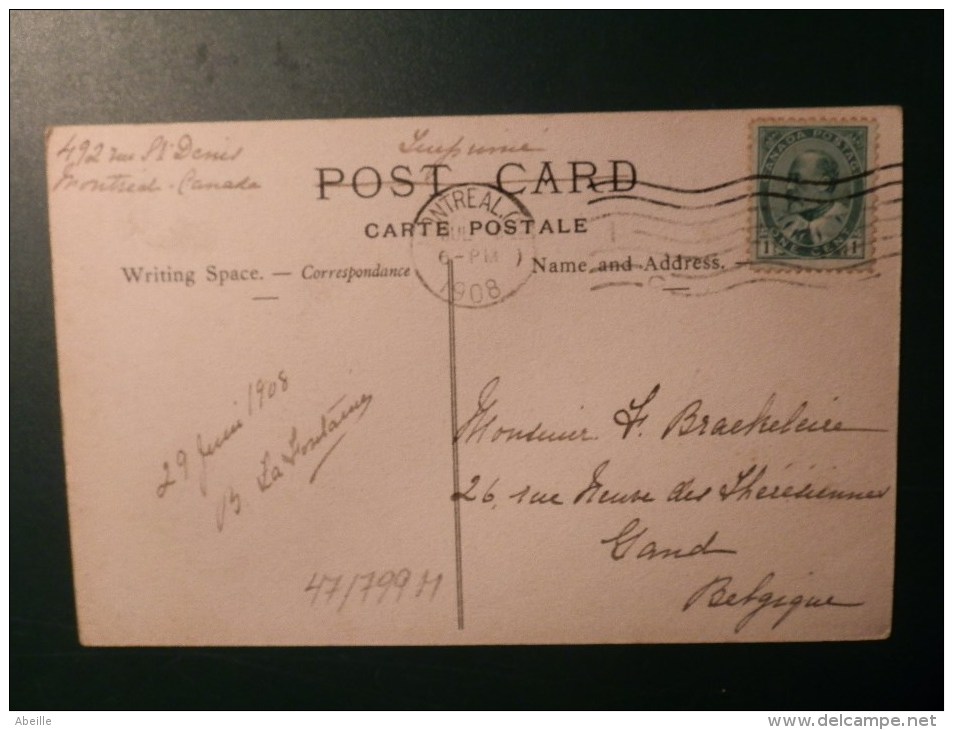 492 rue St Denis
Montréal - Canada
Imprimé
POST CARD
CARTE POSTALE
MONTREAL, C
JUL
6-PM
1908
CANADA POSTAGE
1 ONE CENT 1
Writing Space. — Correspondance
Name and Address. —
29 Juin 1908
B. La Fontaine
Monsieur F. Braekeleire
26, rue Neuve des Thérésiennes
Gand
Belgique
47/799 M
Abeille
www.delcampe.net